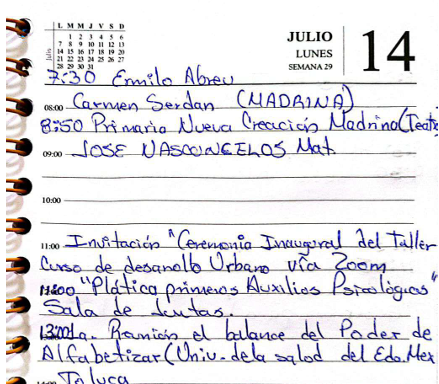 L M M J V S D
1 2 3 4 5 6
7 8 9 10 11 12 13
14 15 16 17 18 19 20
21 22 23 24 25 26 27
28 29 30 31
Julio
JULIO
LUNES
SEMANA 29
14
7:30 Ermilo Abreu
08:00 Carmen Serdan (MADRINA)
8:50 Primaria Nueva Creación Madrina (Teatr
09:00 JOSE VASCONCELOS Mat.
10:00
11:00 Invitación "Ceremonia Inaugural del Taller
Curso de desarrollo Urbano vía Zoom
"Plática primeros Auxilios Psicológicos"
Sala de Juntas.
Reunión el balance del Poder de
Alfabetizar (Univ. de la salod del Edo. Mex
Toluca